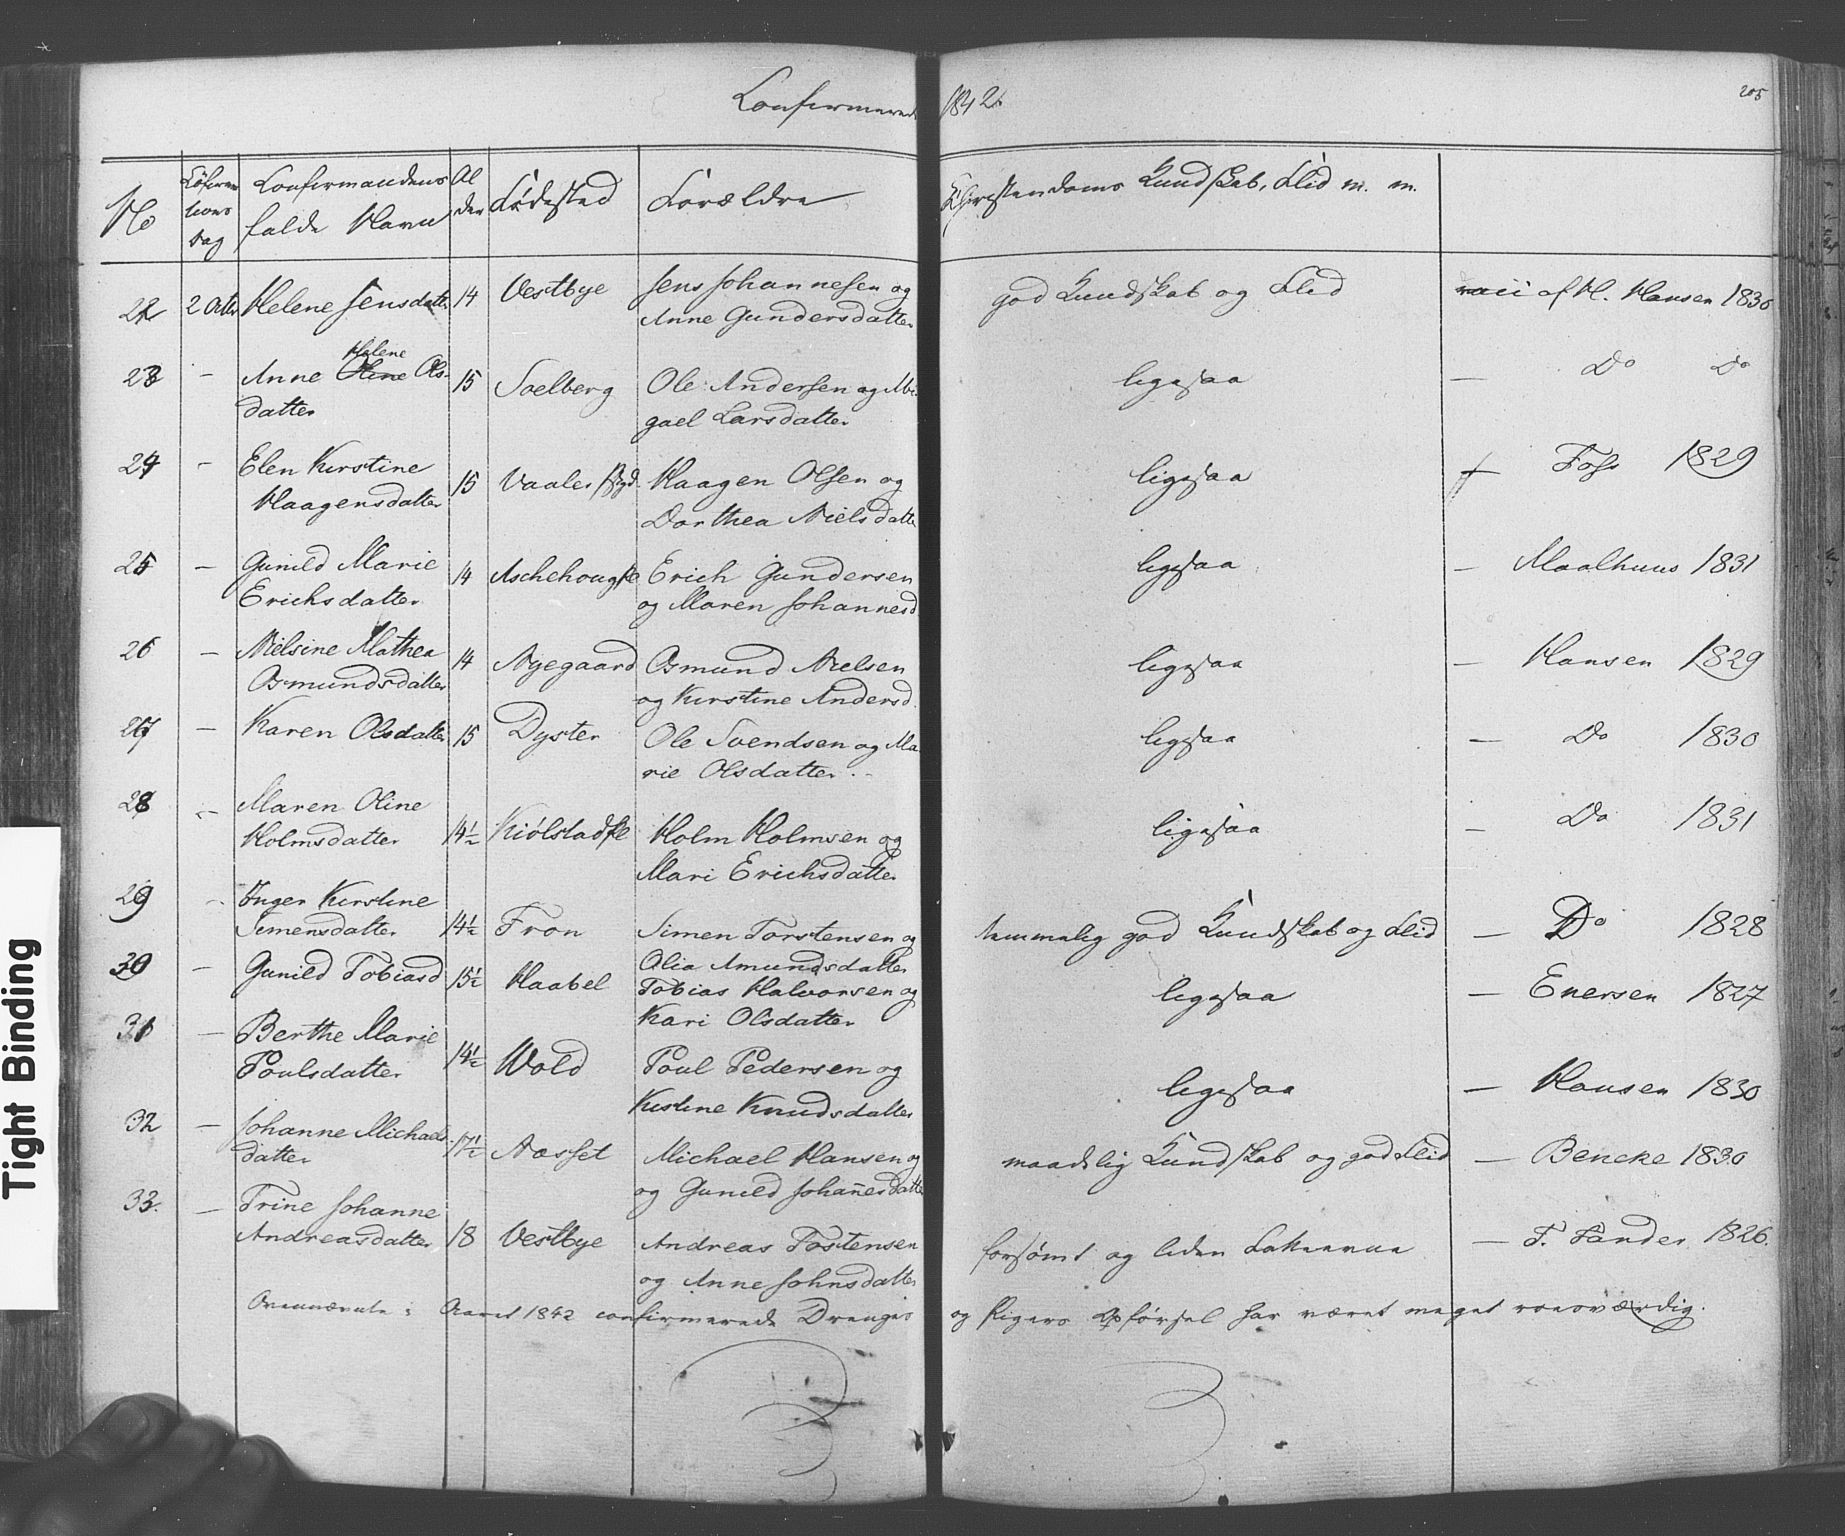 Confirmerede 1842.
205
No
Confirmandens fulde Navn
Alder
Fødested
Forældre
Christendoms Kundskab, Flid m. m.
22 2 Octbr Helene Jensdatter 14 Vestbye Jens Johannesen og god Kundskab og Flid vacc af H. Hansen 1830
Anne Gundersdatter
23 - Anne Helene Ols- 15 Soelberg Ole Andersen og Abi- ligesaa - Do Do
datter gael Larsdatter
24 - Elen Kirstine 15 Vaaler Haagen Olsen og ligesaa Foss 1829
Haagensdatter Dorthea Nielsdatte
25 - Gunild Marie 14 Aschehoug Erich Gundersen ligesaa - Maalhuus 1831
Erichsdatter og Maren Johannesd
26 - Nielsine Mathea 14 Nyegaard Osmund Nielsen ligesaa - Hansen 1829
Osmundsdatter og Kirstine Andersd.
27 - Karen Olsdatter 15 Dyster Ole Svendsen og Ma- ligesaa - Do 1830
rie Olsdatter.
28 - Maren Oline 14½ Kiölstad Holm Holmsen og ligesaa - Do 1831
Holmsdatter Mari Erichsdatter
29 - Inger Kirstine
Simensdatter 14½ Fron Simen Torstensen og temmelig god Kundskab og Flid - Do 1828
Olia Amundsdatter
30 - Gunild Tobiasd 15½ Haabel Tobias Halvorsen og ligesaa - Enersen 1827
Kari Olsdatter
31 - Berthe Marie 14½ Wold Poul Pedersen og ligesaa - Hansen 1830
Poulsdatter Kistine Knudsdatter
32 - Johanne Michaels- 17½ Aasset Michael Hansen og maadelig Kundskab og god Flid - Bencke 1830
datter og Gunild Johan̄esdatte
33. - Trine Johanne
Andreasdatter 18 Vestbye Andreas Tostensen forsømt og liden Fatteevne - F. Sander 1826.
og Anne Johnsdatter
Ovennævnte i Aaret 1842 confirmerede Drenges og Pigers Opførsel har været meget roesværdig.
Tight Binding